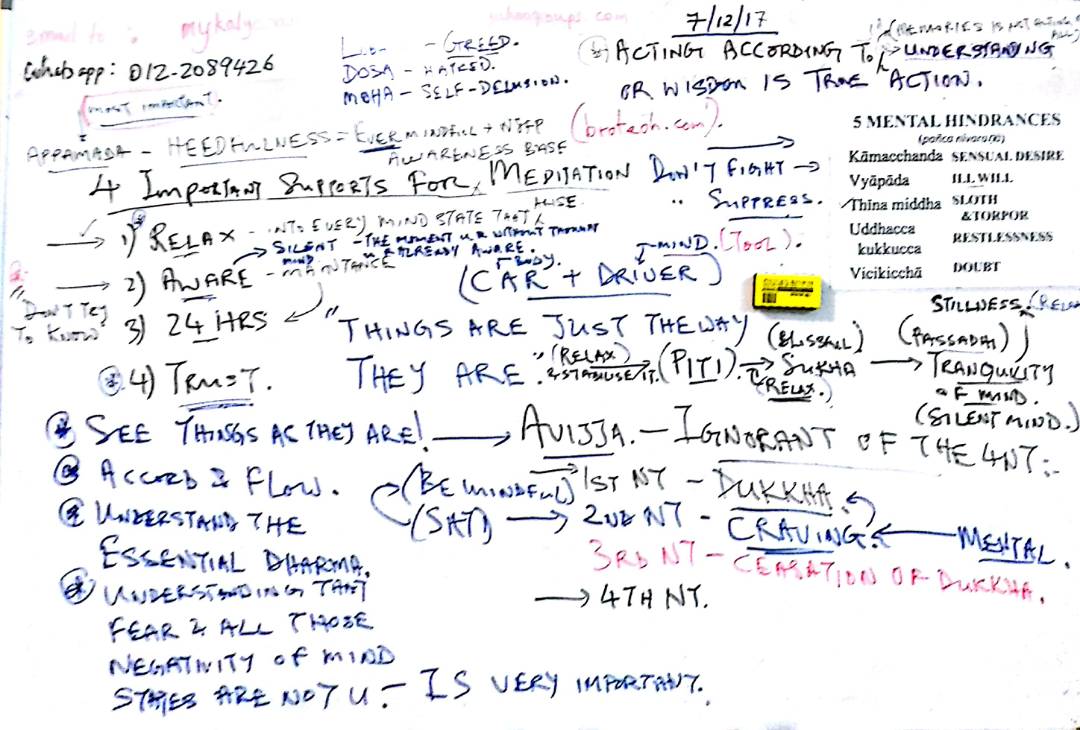 Email to : mykalya
yahoogroups.com
7/12/17
(MEMORIES IS NOT
Whatsapp: 012-2089426
(most important).
- GREED.
DOSA - HATRED.
MOHA - SELF-DELUSION.
ACTING ACCORDING TO UNDERSTANDING
OR WISDOM IS TRUE ACTION.
APPAMADA - HEEDFULNESS = EVER MINDFUL +
AWARENESS BASE
(broteoh.com).
4 IMPORTANT SUPPORTS FOR MEDITATION
DON'T FIGHT →
" SUPPRESS.
→ 1) RELAX - INTO EVERY MIND STATE THAT
ARISE.
SILENT MIND - THE MOMENT U R WITHOUT THOUGHT
U R ALREADY AWARE.
→ 2) AWARE - MAINTANCE
BODY. MIND. (TOOL).
(CAR + DRIVER)
"DON'T TRY
TO KNOW"
3) 24 HRS
4) TRUST.
"THINGS ARE JUST THE WAY
THEY ARE."
(RELAX)
& STABILISE IT.
(PITI). → SUKHA → TRANQUILITY
(BLISSFUL)
(RELAX.)
(PASSADHI)
STILLNESS. (RELAX
OF MIND.
(SILENT MIND.)
5 MENTAL HINDRANCES
(pañca nīvaraṇa)
Kāmacchanda SENSUAL DESIRE
Vyāpāda ILL WILL
Thīna middha SLOTH
& TORPOR
Uddhacca
kukkucca RESTLESSNESS
Vicikicchā DOUBT
SEE THINGS AS THEY ARE! → AVIJJA. - IGNORANT OF THE 4NT:-
ACCORD & FLOW.
(BE MINDFUL) → 1ST NT - DUKKHA.
(SATI) → 2ND NT - CRAVING. ← MENTAL.
3RD NT - CEASATION OF DUKKHA.
→ 4TH NT.
UNDERSTAND THE
ESSENTIAL DHARMA.
UNDERSTANDING THAT
FEAR & ALL THOSE
NEGATIVITY OF MIND
STATES ARE NOT U. - IS VERY IMPORTANT.